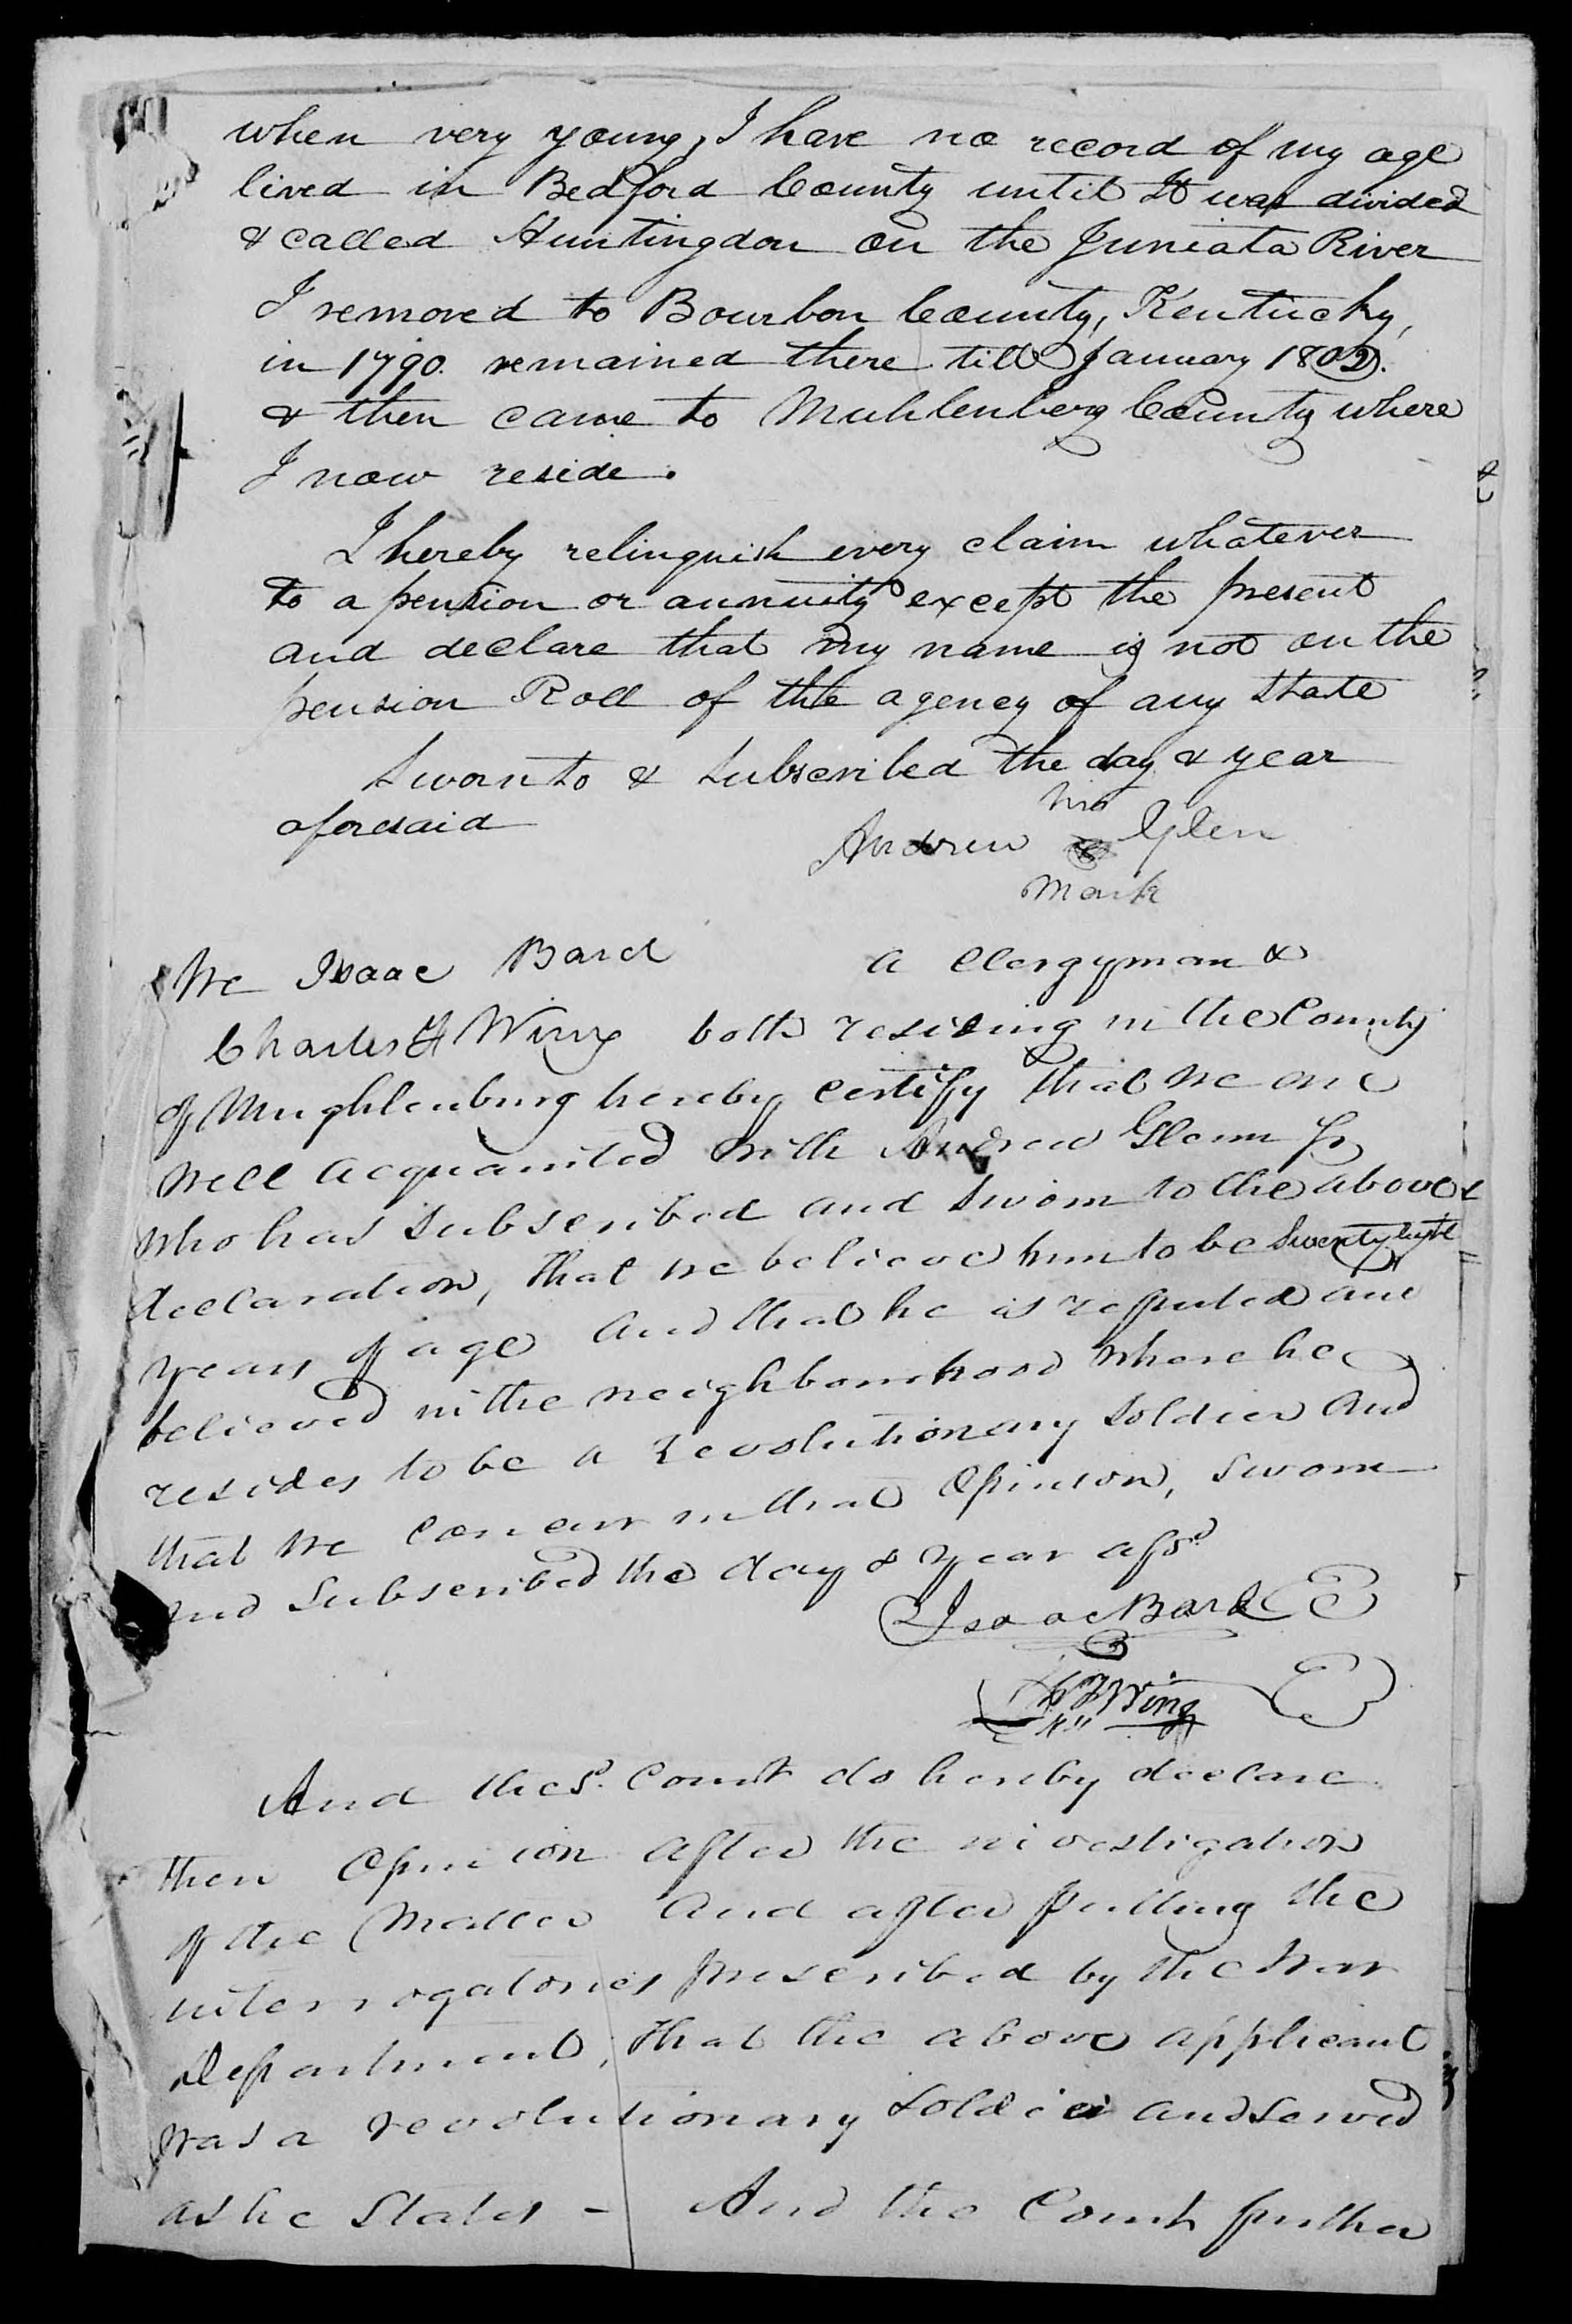 when very young, I have no record of my age
lived in Bedford County until It was divided
& called Huntingdon on the Juniata River
I removed to Bourbon County, Kentucky,
in 1790. remained there till January 1802.
& then came to Muhlenberg County where
I now reside.
I hereby relinquish every claim whatever
to a pension or annuity except the present
and declare that my name is not on the
pension Roll of the agency of any State
Sworn to & Subscribed the day & year
aforesaid
his
Andrew Glen
mark
We Isaac Bard a Clergyman &
Charles F Wing both residing in the County
of Mughlenburg hereby certify that we are
well acquainted with Andrew Glenn Sr
who has subscribed and sworn to the above
declaration, that we believe him to be
years of age and that he is reputed and
believed in the neighbourhood where he
resides to be a revolutionary soldier and
that we concur in that opinion, sworn
and subscribed the day & year afsd
Isaac Bard
C F Wing
And the sd. Court do hereby declare
their opinion after the investigation
of the matter and after putting the
interrogatories prescribed by the War
Department, that the above applicant
was a revolutionary soldier and served
as he states - And the Court further